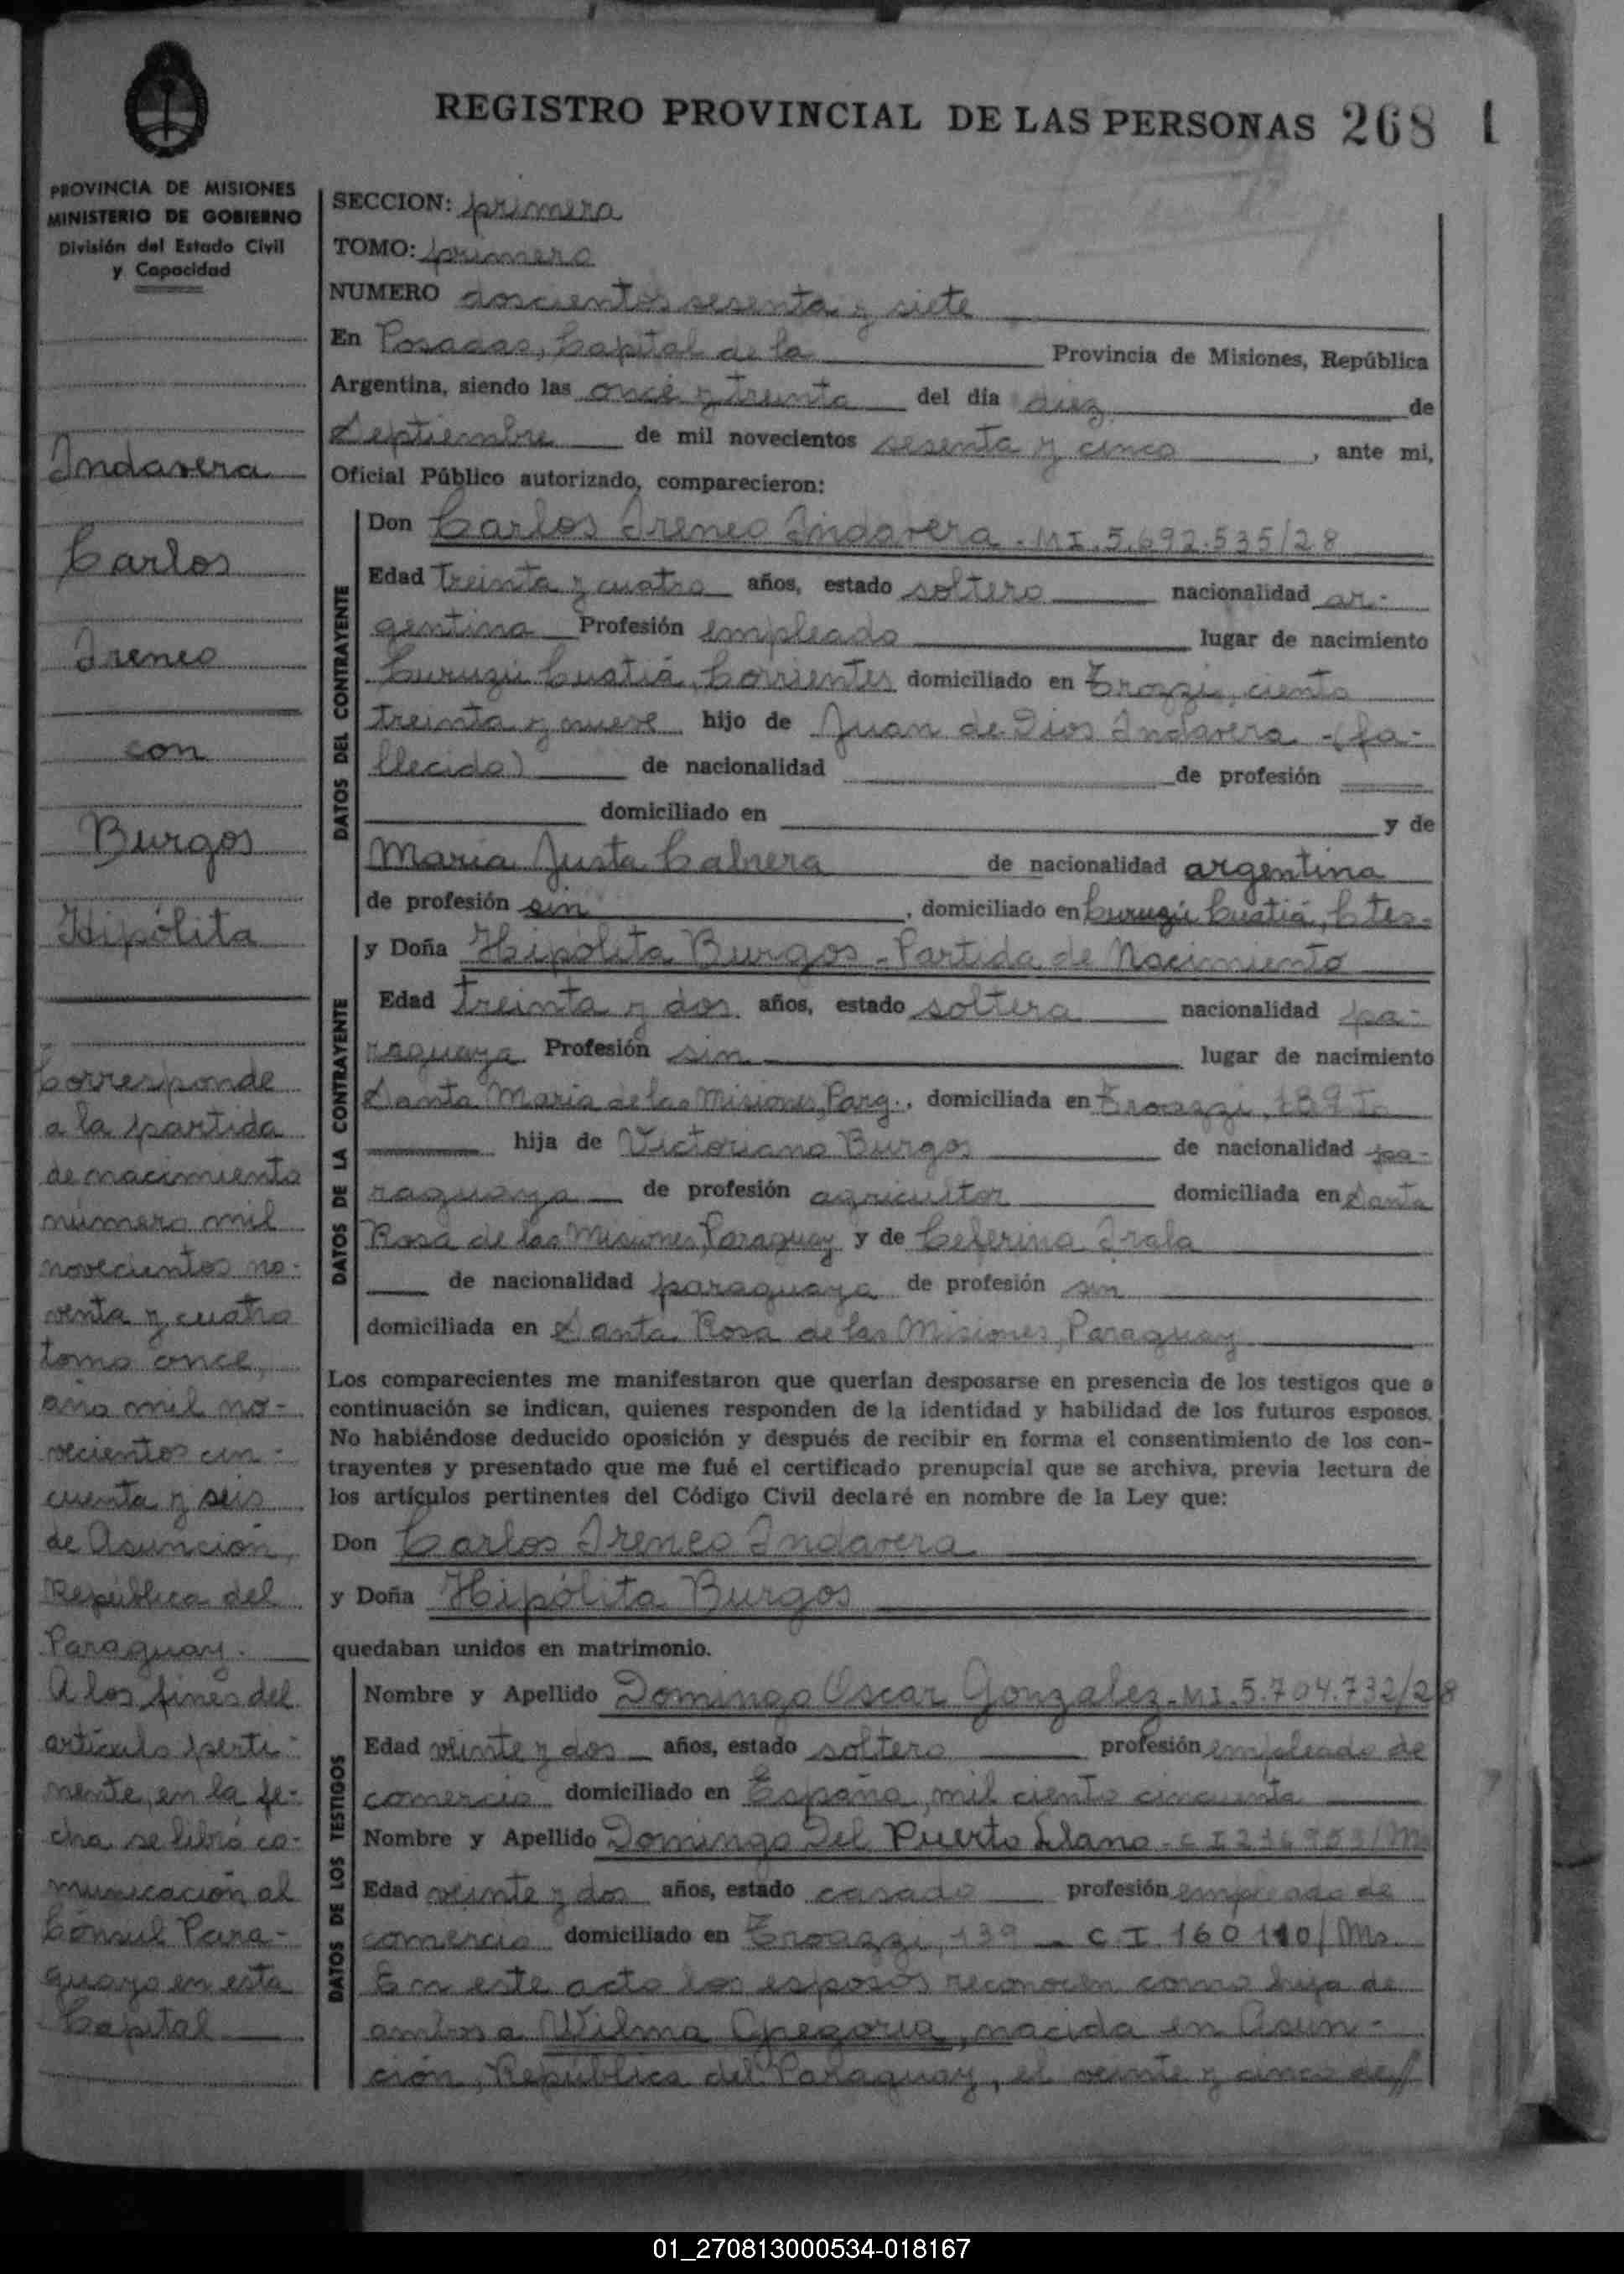 REGISTRO PROVINCIAL DE LAS PERSONAS 268
PROVINCIA DE MISIONES
MINISTERIO DE GOBIERNO
División del Estado Civil
y Capacidad
Indavera
Carlos
Ireneo
con
Burgos
Hipólita
Corresponde
a la partida
de nacimiento
número mil
novecientos no-
venta y cuatro
tomo once,
año mil no-
vecientos cin-
cuenta y seis
de Asunción,
República del
Paraguay.
A los fines del
artículo perti-
nente, en la fe-
cha se libró co-
municación al
Cónsul Para-
guayo en esta
Capital
SECCION: primera
TOMO: primero
NUMERO doscientos sesenta y siete
En Posadas, Capital de la Provincia de Misiones, República
Argentina, siendo las once y treinta del día diez de
Septiembre de mil novecientos sesenta y cinco, ante mi,
Oficial Público autorizado, comparecieron:
DATOS DEL CONTRAYENTE
Don Carlos Ireneo Indavera - MI. 5.692.535/28
Edad treinta y cuatro años, estado soltero nacionalidad ar-
gentina Profesión empleado lugar de nacimiento
Curuzú Cuatiá, Corrientes domiciliado en ciento
treinta y nueve hijo de Juan de Dios Indavera - (fa-
llecido) de nacionalidad de profesión
domiciliado en y de
María Justa Cabrera de nacionalidad argentina
de profesión sin, domiciliado en Curuzú Cuatiá, Ctes.
DATOS DE LA CONTRAYENTE
y Doña Hipólita Burgos - Partida de Nacimiento
Edad treinta y dos años, estado soltera nacionalidad pa-
raguaya Profesión sin lugar de nacimiento
Santa María de las Misiones, Parg., domiciliada en 139
hija de Victoriano Burgos de nacionalidad pa-
raguaya de profesión agricultor domiciliada en Santa
Rosa de las Misiones, Paraguay y de Ceferina Irala
de nacionalidad paraguaya de profesión sin
domiciliada en Santa Rosa de las Misiones, Paraguay
Los comparecientes me manifestaron que querían desposarse en presencia de los testigos que a
continuación se indican, quienes responden de la identidad y habilidad de los futuros esposos.
No habiéndose deducido oposición y después de recibir en forma el consentimiento de los con-
trayentes y presentado que me fué el certificado prenupcial que se archiva, previa lectura de
los artículos pertinentes del Código Civil declaré en nombre de la Ley que:
Don Carlos Ireneo Indavera
y Doña Hipólita Burgos
quedaban unidos en matrimonio.
DATOS DE LOS TESTIGOS
Nombre y Apellido Domingo Oscar Gonzalez - MI. 5.704.732/28
Edad veinte y dos años, estado soltero profesión empleado de
comercio domiciliado en España, mil ciento cincuenta
Nombre y Apellido Domingo Del Puerto Llano - C I
Edad veinte y dos años, estado casado profesión empleado de
comercio domiciliado en 139 - C. I. 160110/Ms.
En este acto los esposos reconocen como hija de
ambos a Wilma Gregoria, nacida en Asun-
ción, República del Paraguay, el veinte y cinco de//
01_270813000534-018167